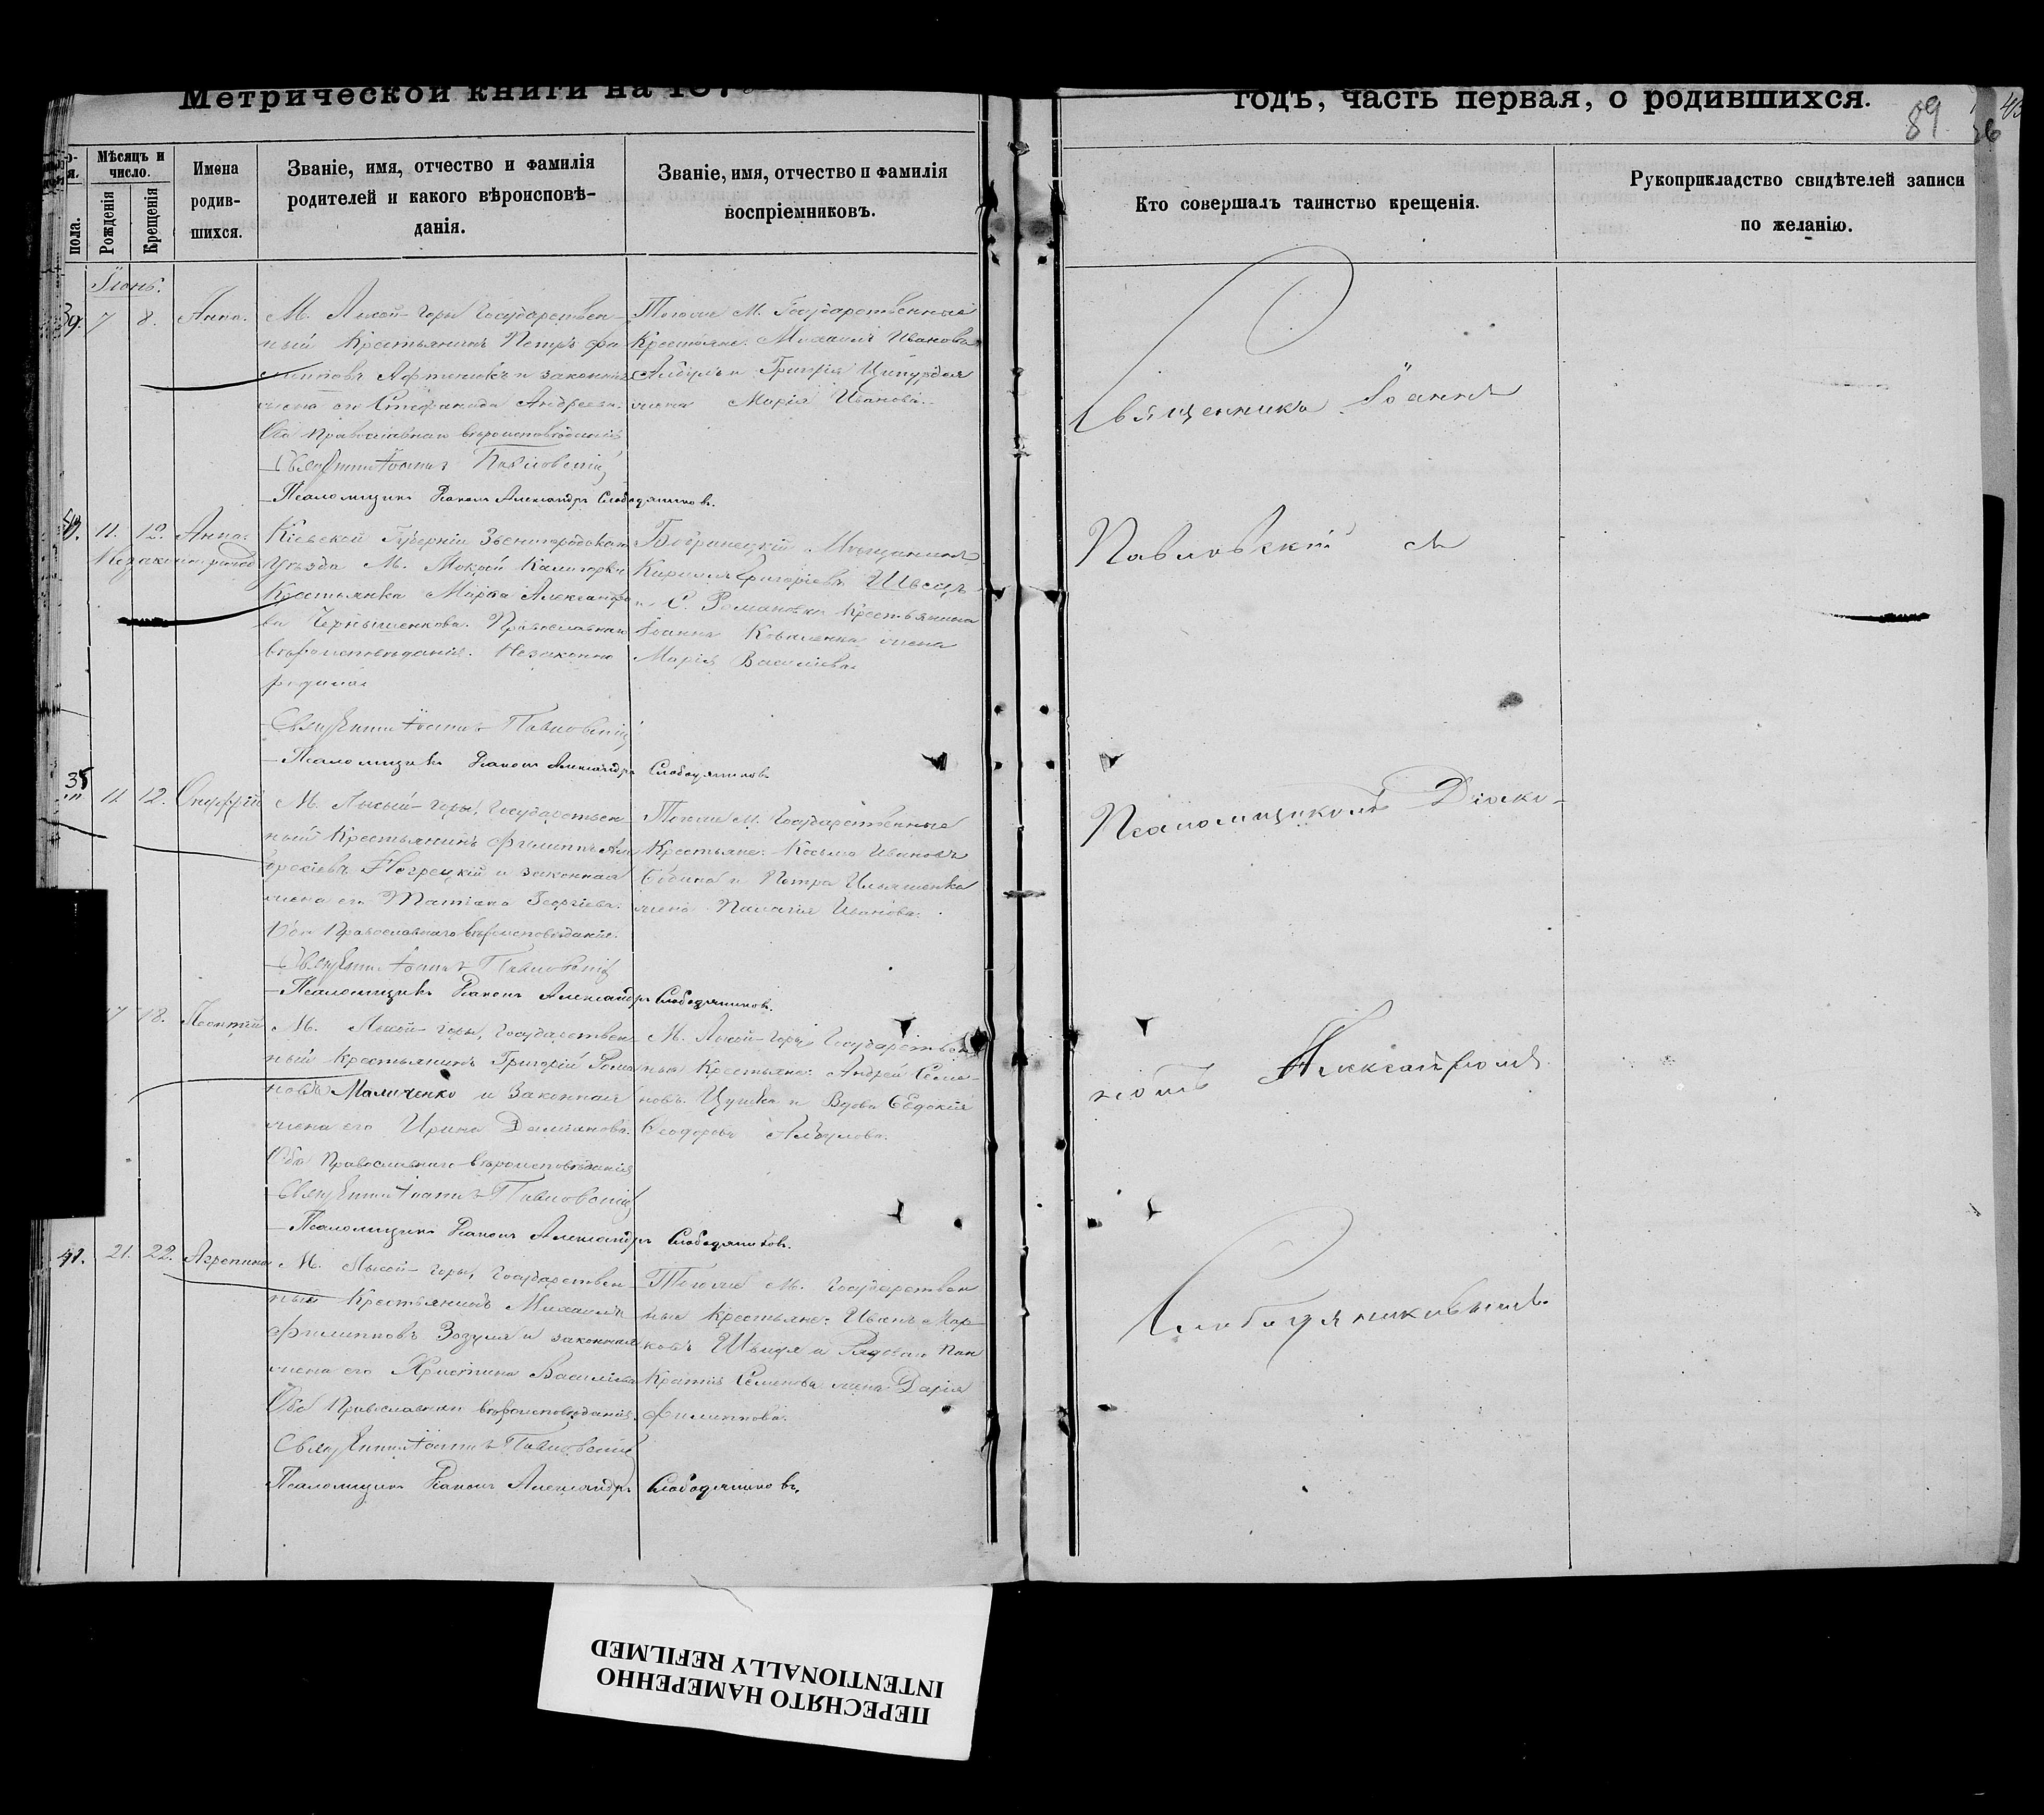 Метрической книги на 187
годъ, часть первая, о родившихся.
89
Мѣсяцъ и число.
пола.
Рожденія
Крещенія
Имена родив-
шихся.
Званіе, имя, отчество и фамилія
родителей и какого вѣроисповѣ-
данія.
Званіе, имя, отчество и фамилія
воспріемниковъ.
Кто совершалъ таинство крещенія.
Рукоприкладство свидѣтелей записи
по желанію.
Іюнь.
39. 7 8. Анна.
М. Лысой-Горы Государствен-
ный Крестьянинъ Петръ Фи
липповъ Афтенюкъ и законная
жена его Стефанида Андреева.
Оба Православнаго вѣроисповѣданія
Священникъ Іоаннъ Павловскій
Псаломщикъ Діаконъ Александръ Слободяниковъ.
Тогоже М. Государственные
Крестьяне: Михаилъ Ивановъ
и Григорія
жена Марія Иванова.
40. 11. 12. Анна
Незаконнорожд
Кіевской Губерніи Звенигородскаго
Уѣзда М. Мокрой Калигорки
Крестьянка Марѳа Александро
ва Чернышенкова. Православнаго
вѣроисповѣданія. Незаконно
родила
Священникъ Іоаннъ Павловскій
Псаломщикъ Діаконъ Александръ Слободяниковъ
Бобринецкій Мѣщанинъ
Кириллъ Григоріевъ Швецъ
и С. Романовки Крестьянина
Іоанна Коваленка жена
Марія Василіева
35 11 12. Онуфрій
М. Лысой-Горы, Государствен-
ный Крестьянинъ Филиппъ Ам
вросіевъ Погрецкій и законная
жена его Татіана Георгіева.
Оба Православнаго вѣроисповѣданія.
Священникъ Іоаннъ Павловскій
Псаломщикъ Діаконъ Александръ Слободяниковъ.
Тогоже М. Государственные
Крестьяне: Косьма Ивановъ
и Петра Ильяшенка
жена Палагія Иванова.
18. Леонтій
М. Лысой-Горы, Государствен-
ный Крестьянинъ Григорій Рома
новъ Маличенко и Законная
жена его Ирина Даміанова.
Оба Православнаго вѣроисповѣданія
Священникъ Іоаннъ Павловскій
Псаломщикъ Діаконъ Александръ Слободяниковъ.
М. Лысой-Горы, Государствен
ные Крестьяне: Андрей Семе-
новъ Цушка и Вдова Евдокія
Ѳеодорова
41. 21. 22. Агрепина
М. Лысой-Горы, Государствен-
ный Крестьянинъ Михаилъ
Филипповъ Зозуля и законная
жена его Христина Василіева
Оба Православнаго вѣроисповѣданія.
Священникъ Іоаннъ Павловскій
Псаломщикъ Діаконъ Александръ Слободяниковъ.
Тогоже М. Государствен
ные Крестьяне: Иванъ Мар-
ковъ Швидя и Рядоваго Пан
кратія Семенова жена Дарія
Филиппова.
Священникъ Іоаннъ
Павловскій съ
Псаломщикомъ Діако-
номъ Александромъ
Слободяниковымъ.
ПЕРЕСНЯТО НАМЕРЕННО
INTENTIONALLY REFILMED